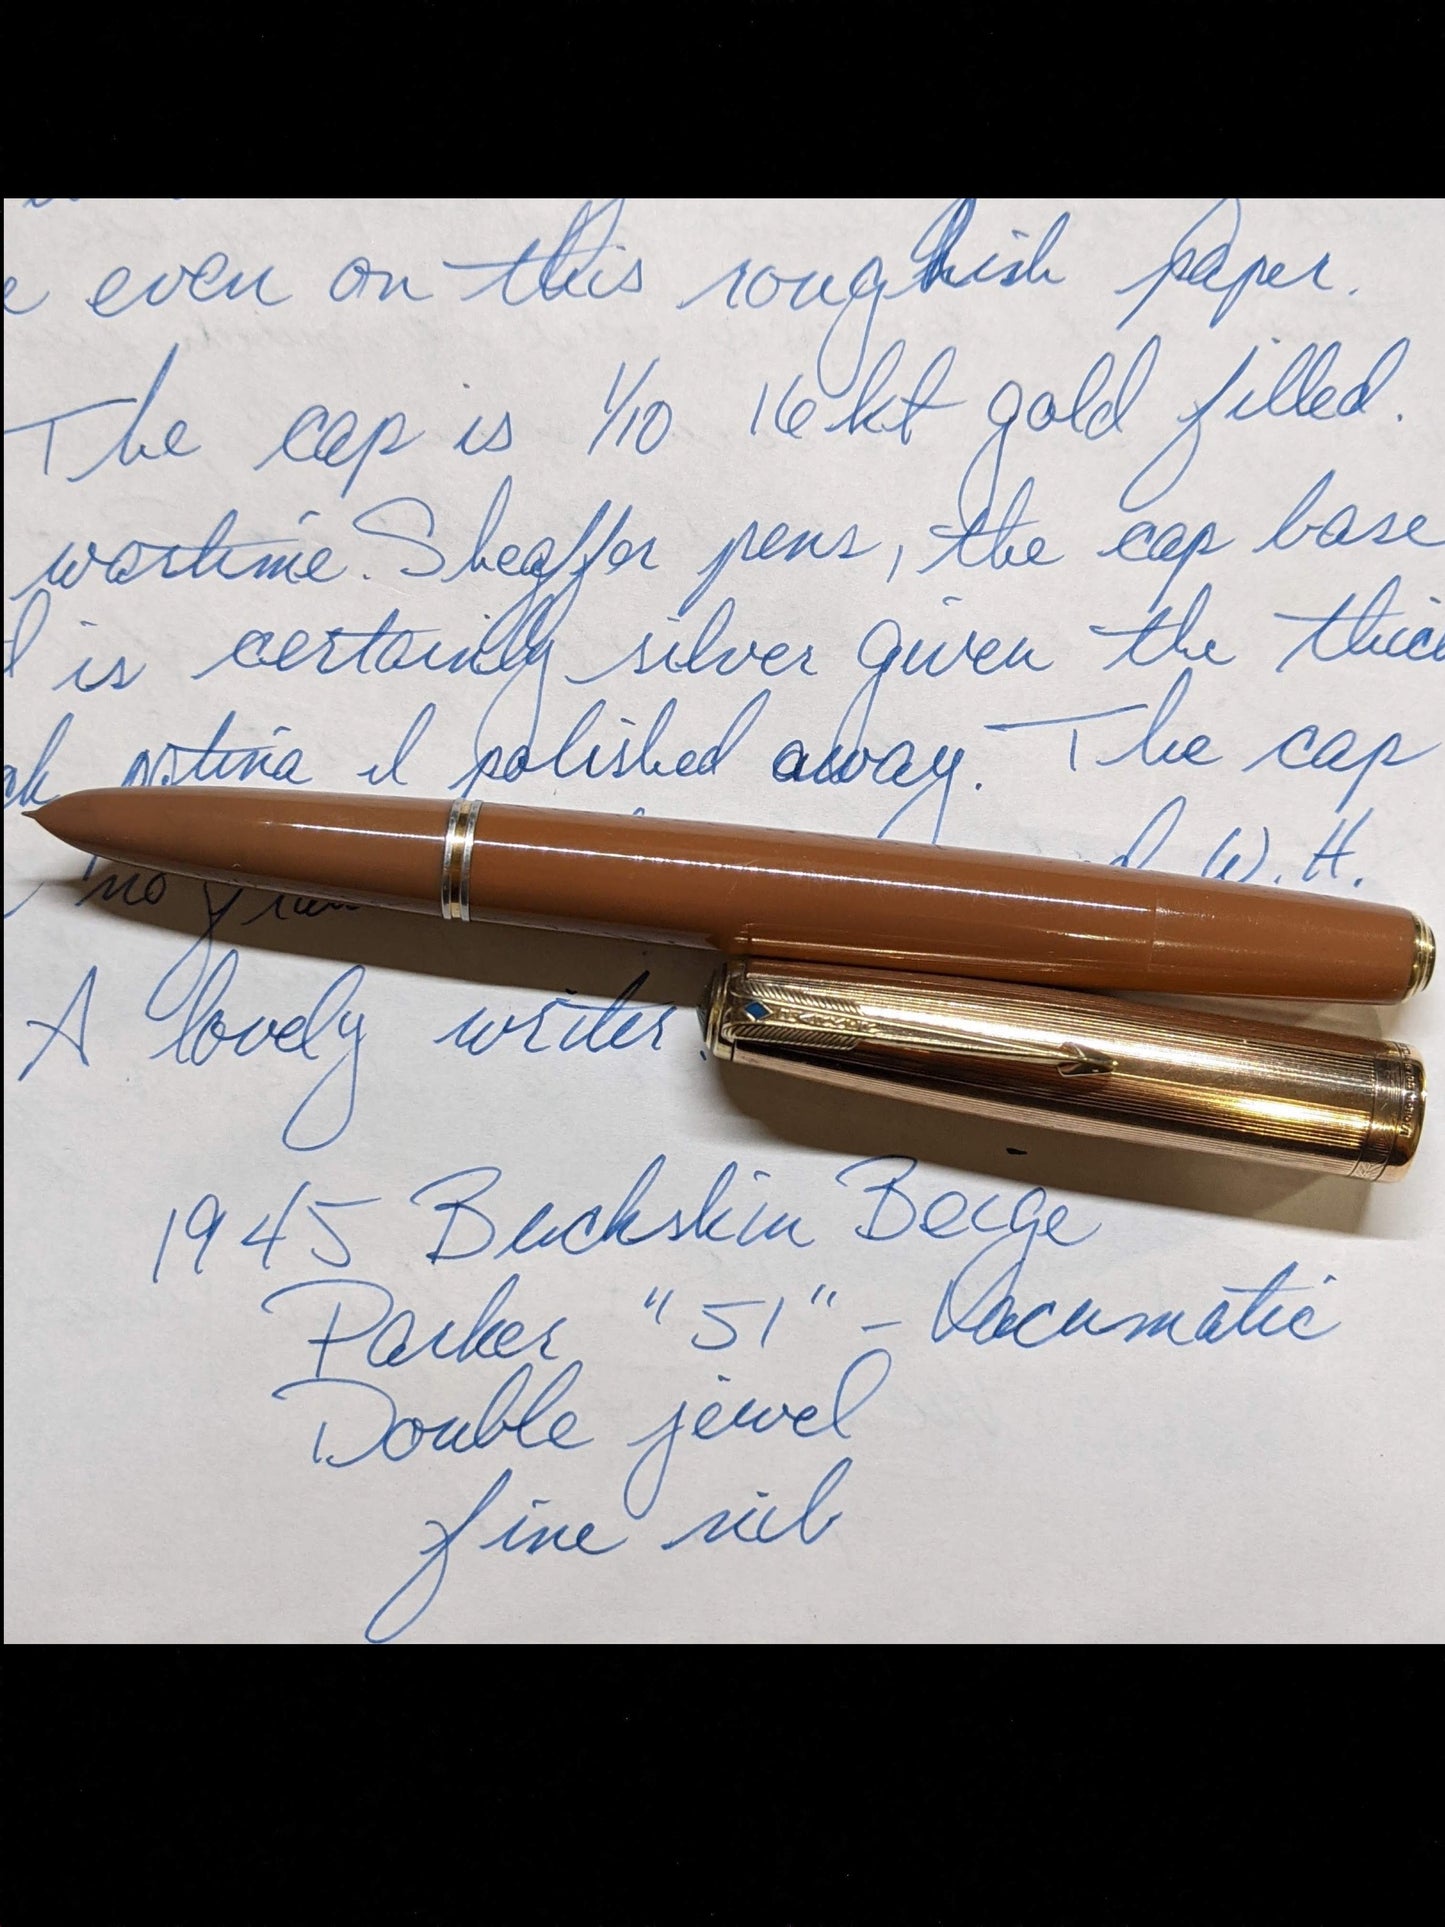 e even on this roughish paper.
The cap is 1/10 16kt gold filled.
wartime Sheaffer pens, the cap base
is certainly silver given the thick
patina I polished away. The cap
W. H.
no
A lovely writer.
1945 Buckskin Beige
Parker "51" - Vacumatic
Double jewel
fine nib